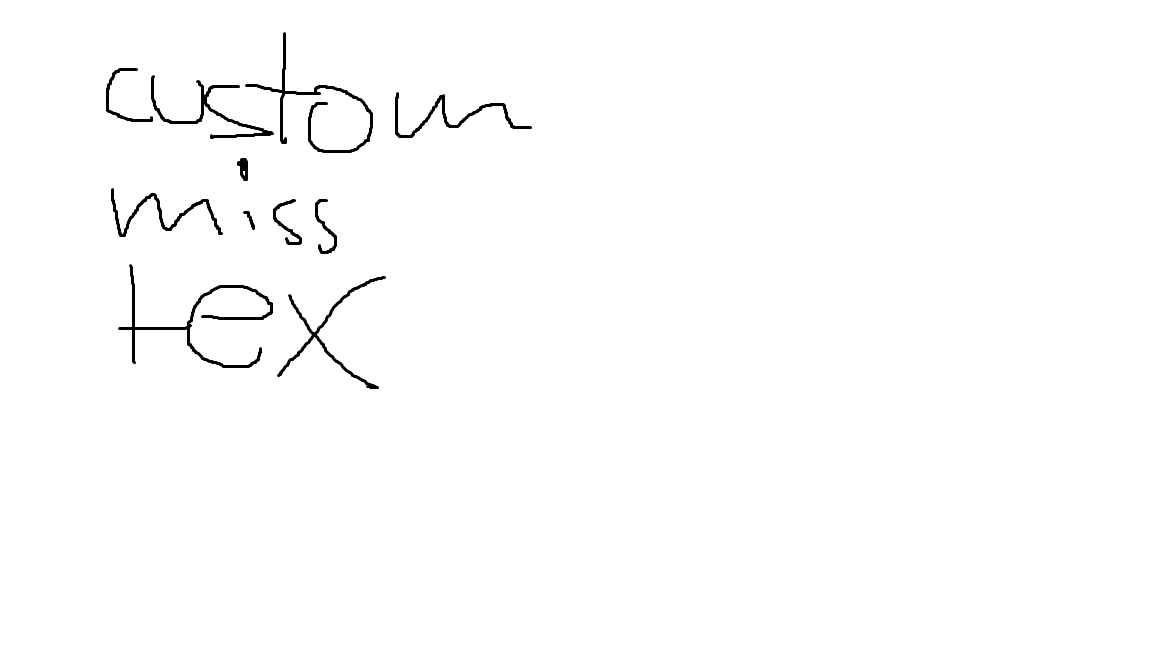 custom
miss
tex